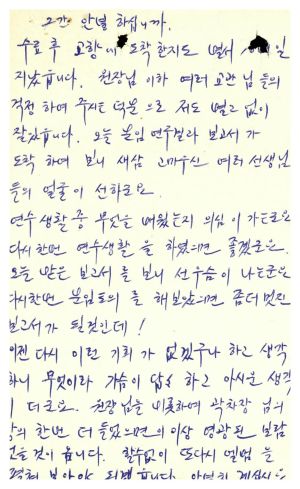 그간 안녕 하십니까.
수료 후 고향에 도착 한지도 벌서 일
지났읍니다. 원장님 이하 여러 교관 님 들의
걱정 하여 주시는 덕분 으로 저도 별고 없이
잘있읍니다. 오늘 분임 연구결과 보고서 가
도착 하여 보니 새삼 고마우신 여러 선생님
들의 얼굴이 선하군요.
연수 생활 중 무엇을 배웠는지 의심 이 가는군요
다시 한번 연수생활 을 하였으면 좋겠군요.
오늘 받은 보고서 를 보니 선 웃음이 나는군요
다시한번 분임토의 를 해보았으면 좀더 멋진
보고서가 될것인데!
이젠 다시 이런 기회 가 없겠구나 하고 생각
하니 무엇이라 가슴이 답 하고 아쉬운 생각
더군요. 원장님을 비롯하여 곽차장 님의
한번 더 들었으면 이상 영광된 보람
것이 읍니다. 할수없이 또다시 앨범 을
보아야 되겠읍니다. 안녕히 계십시요